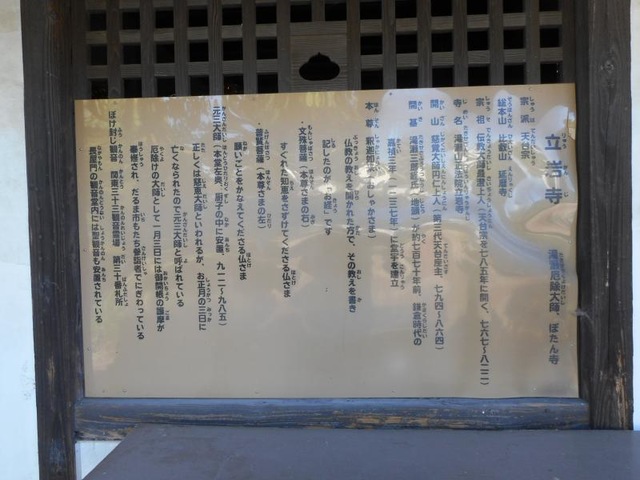 立岩寺 滝瀬厄除大師、ぼたん寺
宗派 天台宗
総本山 比叡山 延暦寺
宗祖 伝教大師最澄上人(天台宗を七八五年に開く、七六七〜八二二)
寺名 滝瀬山正法院立岩寺
開山 慈覚大師円仁上人(第三代天台座主、七九四〜八六四)
開基 滝瀬三郎
が約七百七十年前、鎌倉時代の
嘉禎三年(一二三七年)に堂宇を建立
本尊 釈迦如来(おしゃかさま)
仏教の教えを開かれた方で、その教えを書き
記したのが「お経」です
・文殊菩薩(本尊さまの右)
すぐれた知恵をさずけてくださる仏さま
・普賢菩薩(本尊さまの左)
願いごとをかなえてくださる仏さま
元三大師(本堂左奥、厨子の中に安置、九一二〜九八五)
正しくは慈恵大師といわれるが、お正月の三日に
亡くなられたので元三大師と呼ばれている
厄除けの大師として一月三日には御開帳の護摩が
奉修され、だるま市もたち参詣者でにぎわっている
ぼけ封じ観音 関東三十三観音霊場 第三十番札所
長屋門の観音堂内には聖観音も安置されている